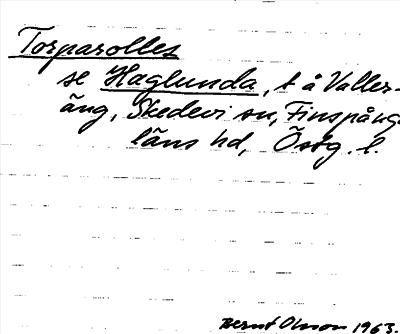 Torparolles
se Haglunda, t å Valler-
äng, Skedevi sn, Finspånga
läns hd, Östg. l.
Bernt Olsson 1963.